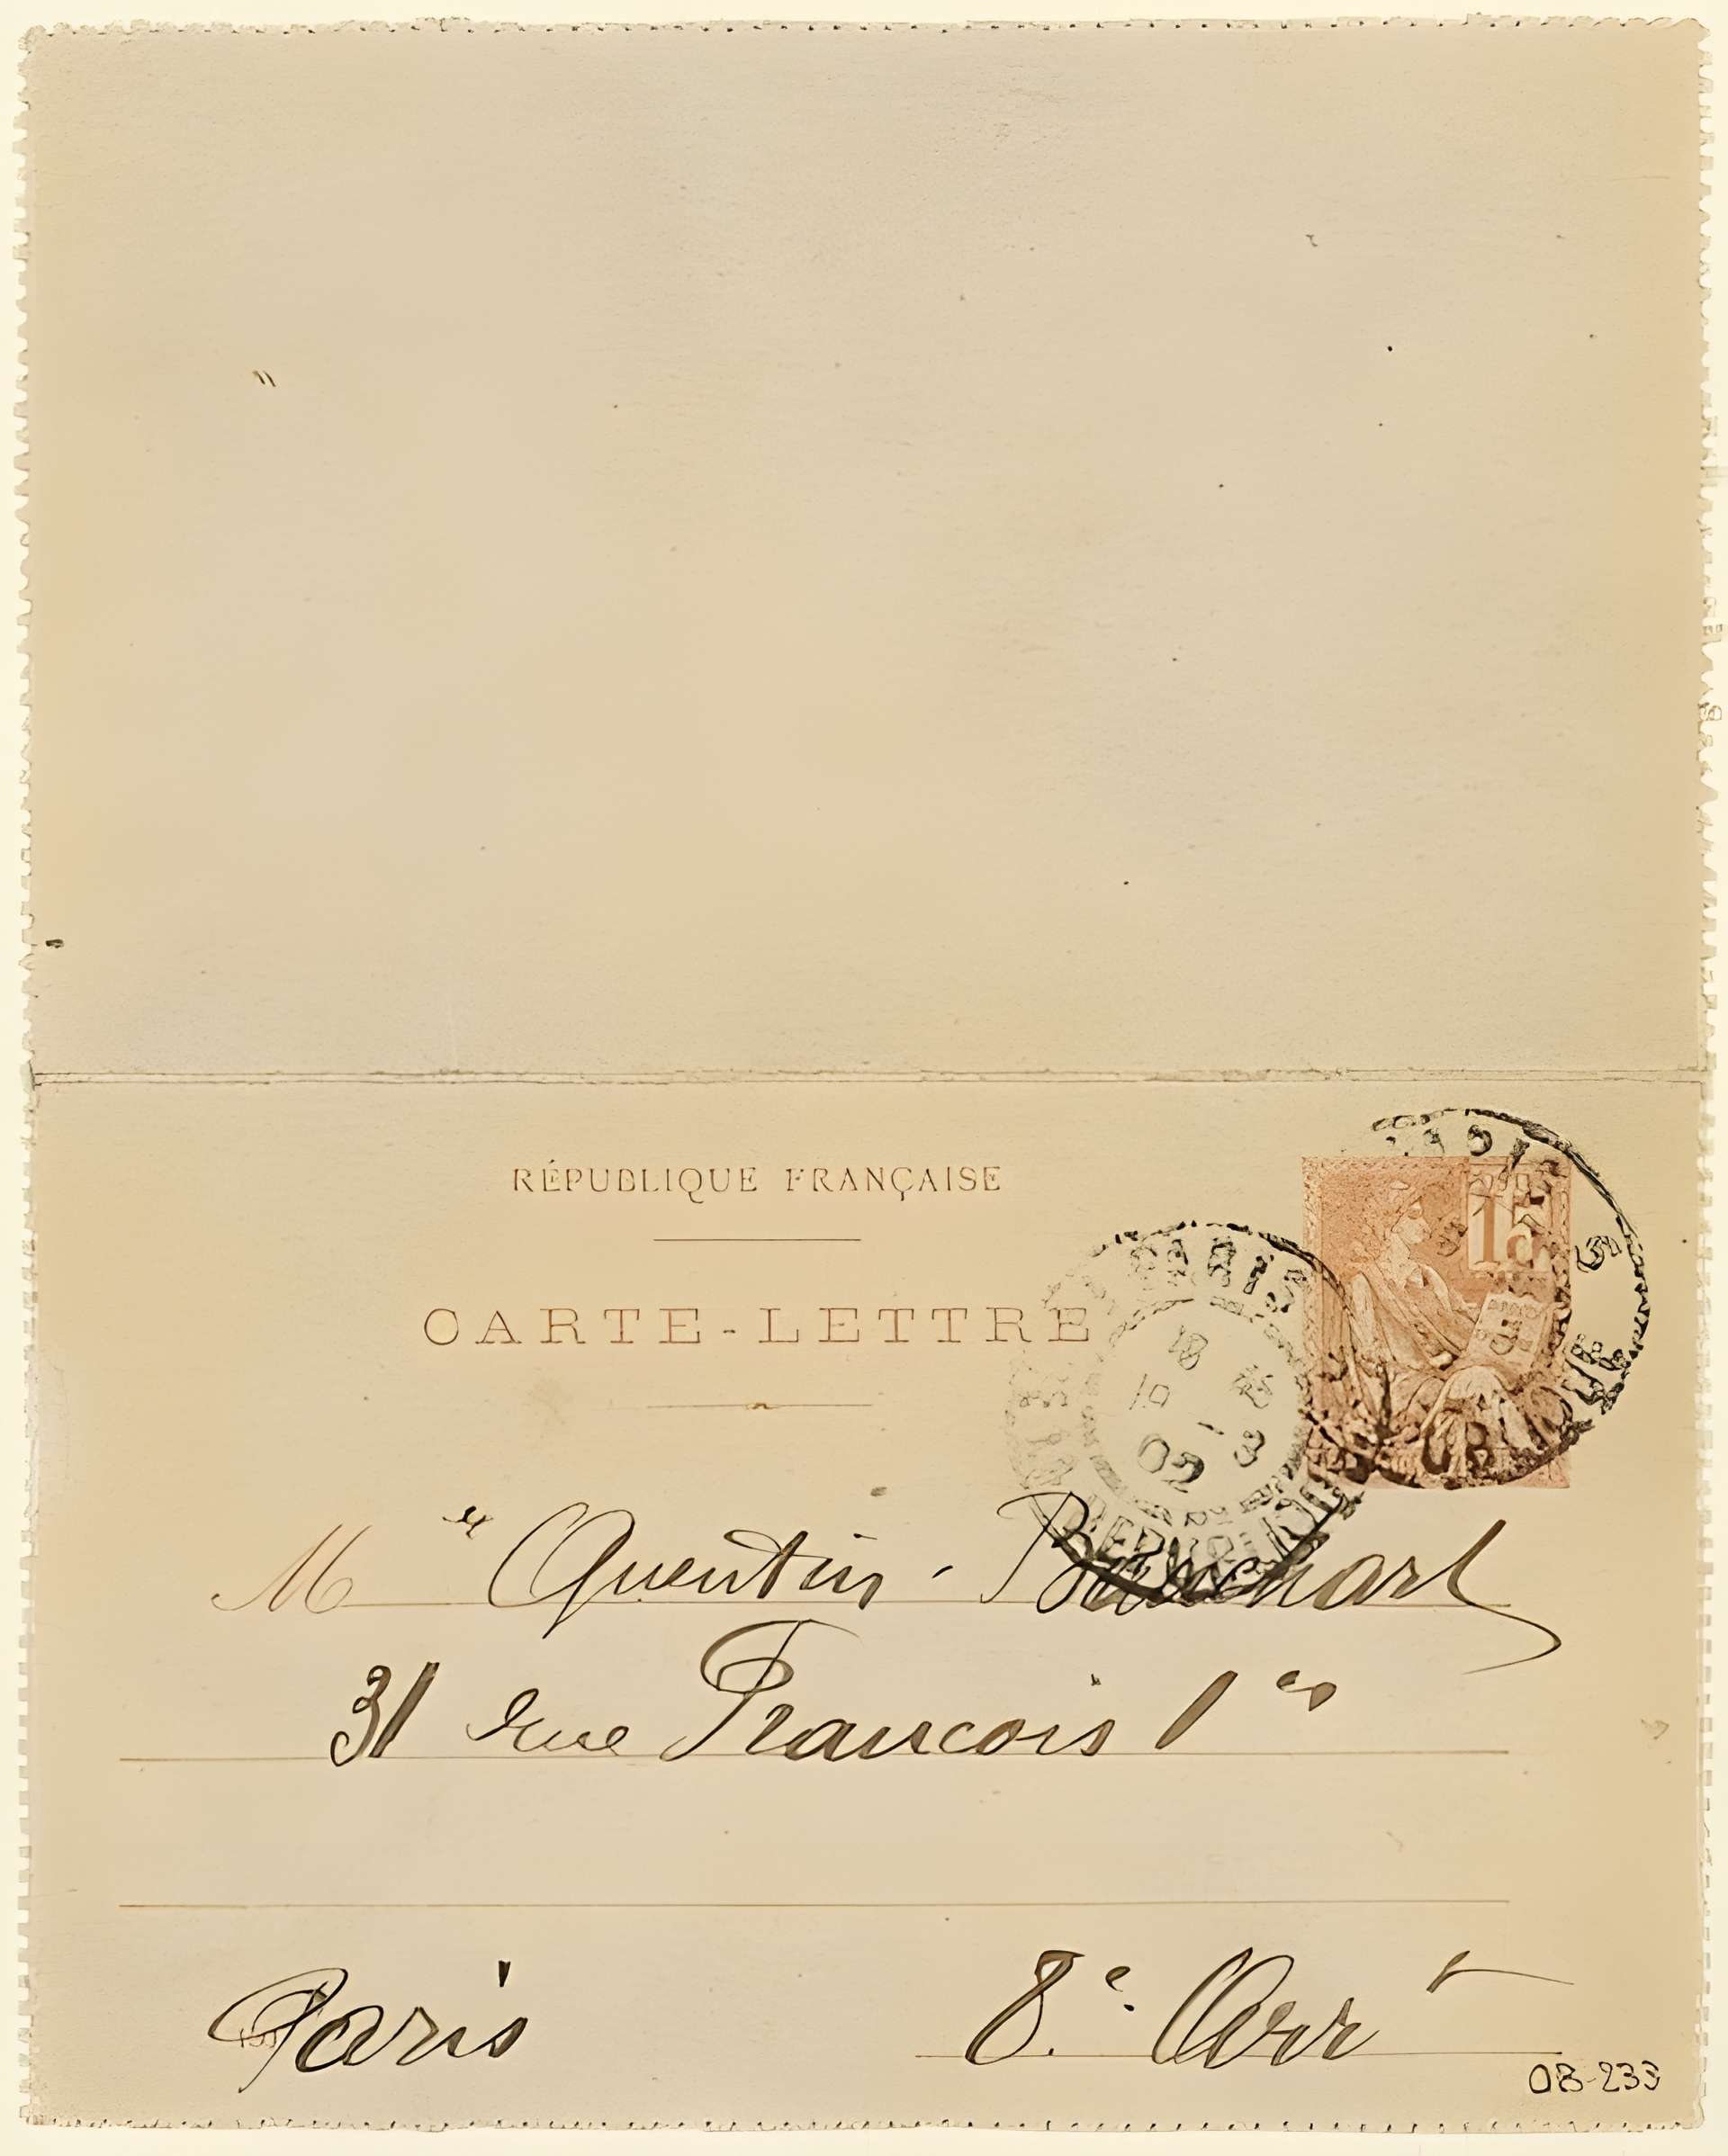 RÉPUBLIQUE FRANÇAISE
CARTE-LETTRE
15
PARIS
18
3
02
M Quentin-Bauchart
31 rue Francois 1er
Paris 8e Arrt
08-233